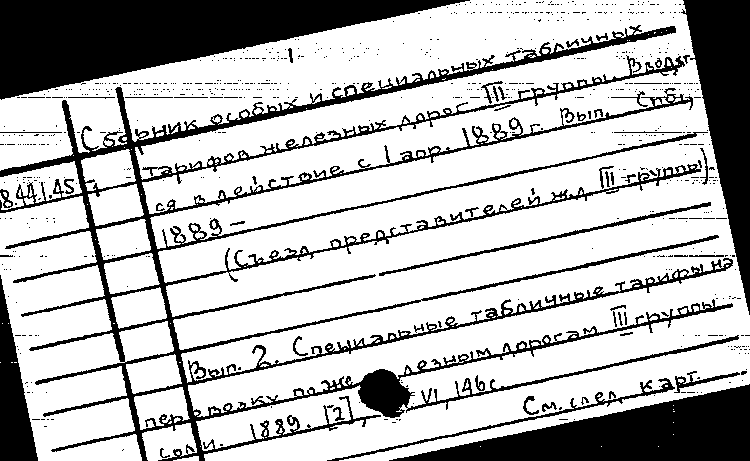 1
Сборник особых и специальных табличных
тарифов железных дорог III группы. Вводят-
ся в действие с 1 апр. 1889 г. Вып. Спб.,
1889 –
(Съезд представителей ж.д. III группы)
Вып. 2. Специальные табличные тарифы на
перевозку по железным дорогам III группы
соли. 1889. [2], VI, 146 с.
См. след. карт.